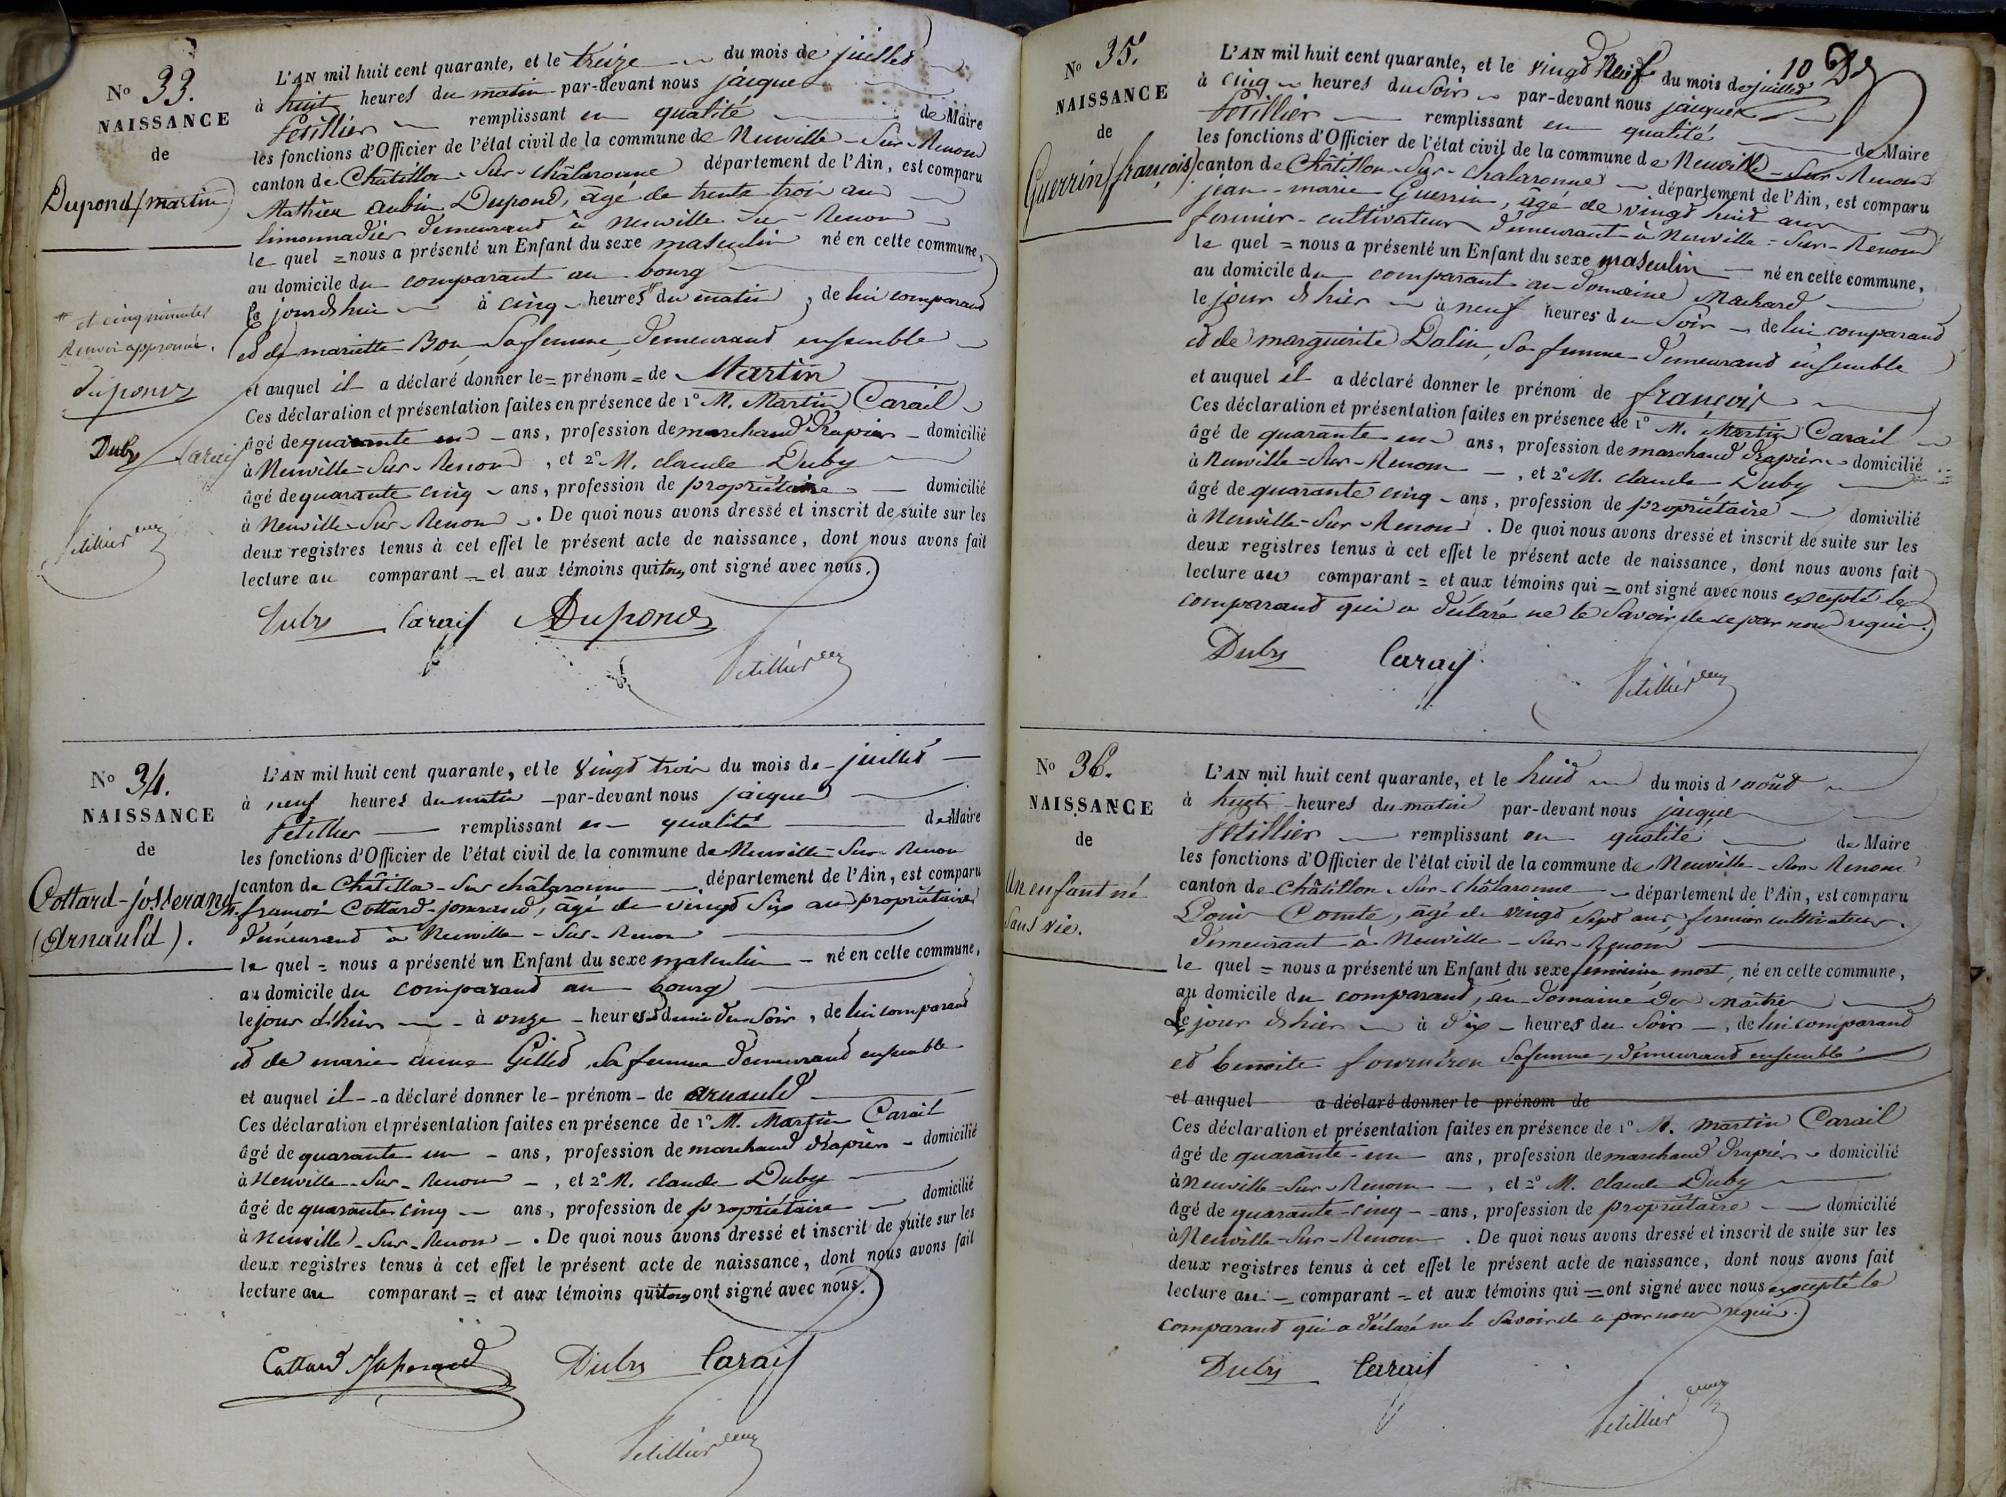 N° 33.
NAISSANCE
de
Dupond (martin)
L'AN mil huit cent quarante, et le treize du mois de juillet
à huit heures du matin par-devant nous jacques
Petillier remplissant en qualité de Maire
les fonctions d'Officier de l'état civil de la commune de Neuville-Sur-Renom
canton de Châtillon-Sur-châlaronne département de l'Ain, est comparu
Mathieu aubin Dupond, âgé de trente trois ans
limonnadier demeurand à Neuville-Sur-Renom
lequel = nous a présenté un Enfant du sexe masculin né en cette commune,
au domicile du comparant au bourg
Ce jourd'hui à cinq heures * du matin, de lui comparand
et de mariette Bon, sa femme, demeurand ensemble
et auquel il a déclaré donner le = prénom = de Martin
Ces déclaration et présentation faites en présence de 1° M. Martin Carail
âgé de quarante un ans, profession de marchand drapier domicilié
à Neuville-Sur-Renom, et 2° M. claude Duby
âgé de quarante cinq ans, profession de propriétaire domicilié
à Neuville-Sur-Renom. De quoi nous avons dressé et inscrit de suite sur les
deux registres tenus à cet effet le présent acte de naissance, dont nous avons fait
lecture au comparant = et aux témoins qui tous ont signé avec nous.
Duby Carail Dupond
Petillier
* et cinq minutes
Renvoi approuvé.
Dupond
Duby Carail
Petillier
N° 34.
NAISSANCE
de
Cottard-josserand
(Arnauld).
L'AN mil huit cent quarante, et le vingt trois du mois de juillet
à neuf heures du matin par-devant nous jacques
Petillier remplissant en qualité de Maire
les fonctions d'Officier de l'état civil de la commune de Neuville-Sur-Renom
canton de Châtillon-Sur-châlaronne, département de l'Ain, est comparu
M. françois Cottard-josserand, âgé de vingt six ans propriétaire
demeurand à Neuville-Sur-Renom
lequel = nous a présenté un Enfant du sexe masculin né en cette commune,
au domicile du comparand au bourg
le jour d'hier à onze heures et demie du Soir, de lui comparand
et de marie anne Gillet, sa femme demeurand ensemble
et auquel il a déclaré donner le prénom de arnauld
Ces déclaration et présentation faites en présence de 1° M. Martin Carail
âgé de quarante un ans, profession de marchand drapier domicilié
à Neuville-Sur-Renom, et 2° M. claude Duby
âgé de quarante cinq ans, profession de propriétaire domicilié
à Neuville-Sur-Renom. De quoi nous avons dressé et inscrit de suite sur les
deux registres tenus à cet effet le présent acte de naissance, dont nous avons fait
lecture au comparant = et aux témoins qui tous ont signé avec nous.
Cottard Josserand Duby Carail
Petillier
10
N° 35.
NAISSANCE
de
Guerrin (françois)
L'AN mil huit cent quarante, et le vingt Neuf du mois de juillet
à cinq heures du Soir par-devant nous jacques
Petillier remplissant en qualité de Maire
les fonctions d'Officier de l'état civil de la commune de Neuville-Sur-Renom
canton de Châtillon-Sur-chalaronne département de l'Ain, est comparu
jean-marie Guerrin, âgé de vingt huit ans
fermier-cultivateur demeurant à Neuville-Sur-Renom
lequel = nous a présenté un Enfant du sexe masculin né en cette commune,
au domicile du comparant au domaine Machard
le jour d'hier à neuf heures du Soir de lui comparand
et de marguerite Dalin, sa femme demeurand ensemble
et auquel il a déclaré donner le prénom de françois
Ces déclaration et présentation faites en présence de 1° M. Martin Carail
âgé de quarante un ans, profession de marchand drapier domicilié
à Neuville-Sur-Renom, et 2° M. claude Duby
âgé de quarante cinq ans, profession de propriétaire domicilié
à Neuville-Sur-Renom. De quoi nous avons dressé et inscrit de suite sur les
deux registres tenus à cet effet le présent acte de naissance, dont nous avons fait
lecture au comparant = et aux témoins qui = ont signé avec nous excepté le
comparand qui a déclaré ne le Savoir de ce par nous requis.
Duby Carail
Petillier
N° 36.
NAISSANCE
de
Un enfant né
Sans vie.
L'AN mil huit cent quarante, et le huit du mois d'août
à huit heures du matin par-devant nous jacques
Petillier remplissant en qualité de Maire
les fonctions d'Officier de l'état civil de la commune de Neuville-Sur-Renom
canton de Châtillon-Sur-châlaronne département de l'Ain, est comparu
Louis Comte, âgé de vingt sept ans, fermier cultivateur.
demeurant à Neuville-Sur-Renom
lequel = nous a présenté un Enfant du sexe feminin mort, né en cette commune,
au domicile du comparand, au domaine des Maitres
Le jour d'hier à dix heures du Soir, de lui comparand
et benoite fourniron sa femme, demeurand ensemble
et auquel a déclaré donner le prénom de
Ces déclaration et présentation faites en présence de 1° M. martin Carail
âgé de quarante-un ans, profession de marchand drapier domicilié
à Neuville-Sur-Renom, et 2° M. claude Duby
âgé de quarante-cinq ans, profession de propriétaire domicilié
à Neuville-Sur-Renom. De quoi nous avons dressé et inscrit de suite sur les
deux registres tenus à cet effet le présent acte de naissance, dont nous avons fait
lecture au comparant = et aux témoins qui = ont signé avec nous excepté le
comparand qui a déclaré ne le Savoir de ce par nous requis.
Duby Carail
Petillier